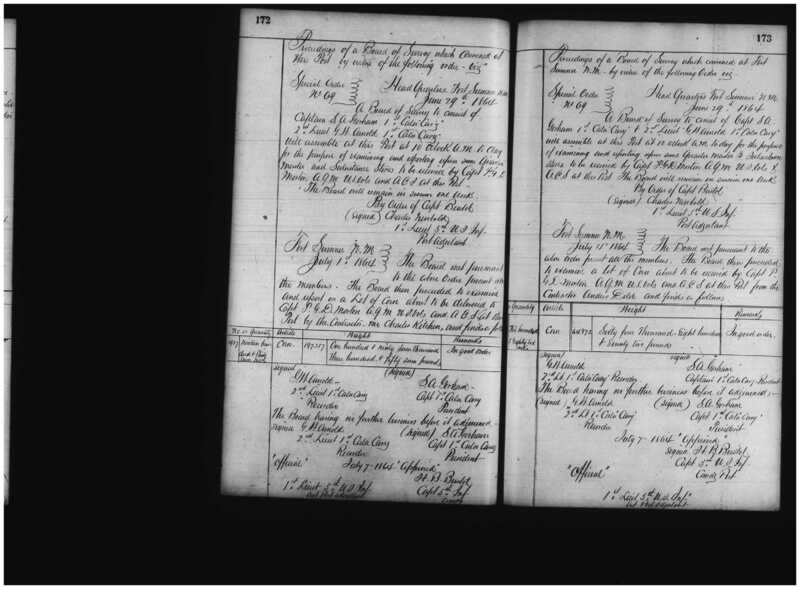 172
Proceedings of a Board of Survey which convened at
this Post by virtue of the following order – viz
Special Order
No 69
Head Quarters Fort Sumner N.M.
June 29th 1864
A Board of Survey to consist of
Captain S A Gorham 1st Cala Cavy
2nd Lieut G H Arnold 1st Cala Cavy
will assemble at this Post at 10 oclock A.M. to day
for the purpose of examining and reporting upon some Quarter
master and Subsistence Stores to be received by Capt P. G. D.
Morton A.Q.M. U.S. Vols and A.C.S at this Post
The Board will remain in session one week.
By Order of Capt Bristol
(signed) Charles Newbold
1st Lieut 5th U.S Inf.
Post Adjutant
Fort Sumner N.M.
July 1st 1864
The Board met pursuant
to the above Order present all
the members. The Board then proceeded to examine
and report on a Lot of Corn about to be delivered to
Capt P. G. D. Morton A.Q.M U.S Vols and A.C.S at this
Post by the Contractor Mr Charles Kitchen, and finds as follows
No or Quantity
Article
Weight
Remarks
1497
Corn
197357
One hundred & ninety seven thousand
three hundred & fifty seven pounds
In good order
signed
(signed)
G H Arnold –
2nd Lieut 1st Cala Cavy
Recorder
S A Gorham
Capt 1st Cala Cavy
President
The Board having no further business before it adjourned –
signed G H Arnold
2nd Lieut 1st Cala Cavy
Recorder
(signed) S A Gorham
Capt 1st Cala Cavy
President
"Official"
July 7 – 1864 "Approved"
H B Bristol
Capt 5th Inf
1st Lieut 5th U.S Inf.
Act Post Adjutant
173
Proceedings of a Board of Survey which convened at Fort
Sumner N.M. – by virtue of the following Order viz –
Special Order
No 69
Head Quarters Fort Sumner N.M.
June 29th 1864
A Board of Survey to consist of Capt S.A.
Gorham 1st Cala Cavy & 2nd Lieut G H Arnold 1st Cala Cavy
will assemble at this Post at 10 oclock A.M. to day for the purpose
of examining and reporting upon some Quarter Master & Subsistence
stores to be received by Capt P.G.D. Morton A.Q.M U.S. Vols &
A.C.S at this Post The Board will remain in session one week.
By Order of Capt Bristol
(signed) Charles Newbold
1st Lieut 5th U.S Inf.
Post Adjutant
Fort Sumner N.M.
July 1st 1864
The Board met pursuant to the
above order present all the members. The Board then proceeded
to examine a lot of Corn about to be received by Capt P.
G.D. Morton A.Q.M. U.S. Vols and A.C.S at this Post from the
Contractor and finds as follows
Quantity
Article
Weight
Remarks
Corn
64872
Sixty four Thousand Eight hundred
& Seventy two pounds
In good order
signed
signed
G H Arnold
2nd Lt 1st Cala Cavy Recorder
S A Gorham
Captain 1st Cala Cavy President
The Board having no further business before it adjourned –
(signed) G H Arnold
2nd Lt 1st Cala Cavy
Recorder
(signed) S A Gorham
Capt 1st Cala Cavy
President
July 7 – 1864 "Approved"
signed H B Bristol
Capt 5th U.S Inf
Comdg Post
"Official"
1st Lieut 5th U.S Inf.
Act Post Adjutant